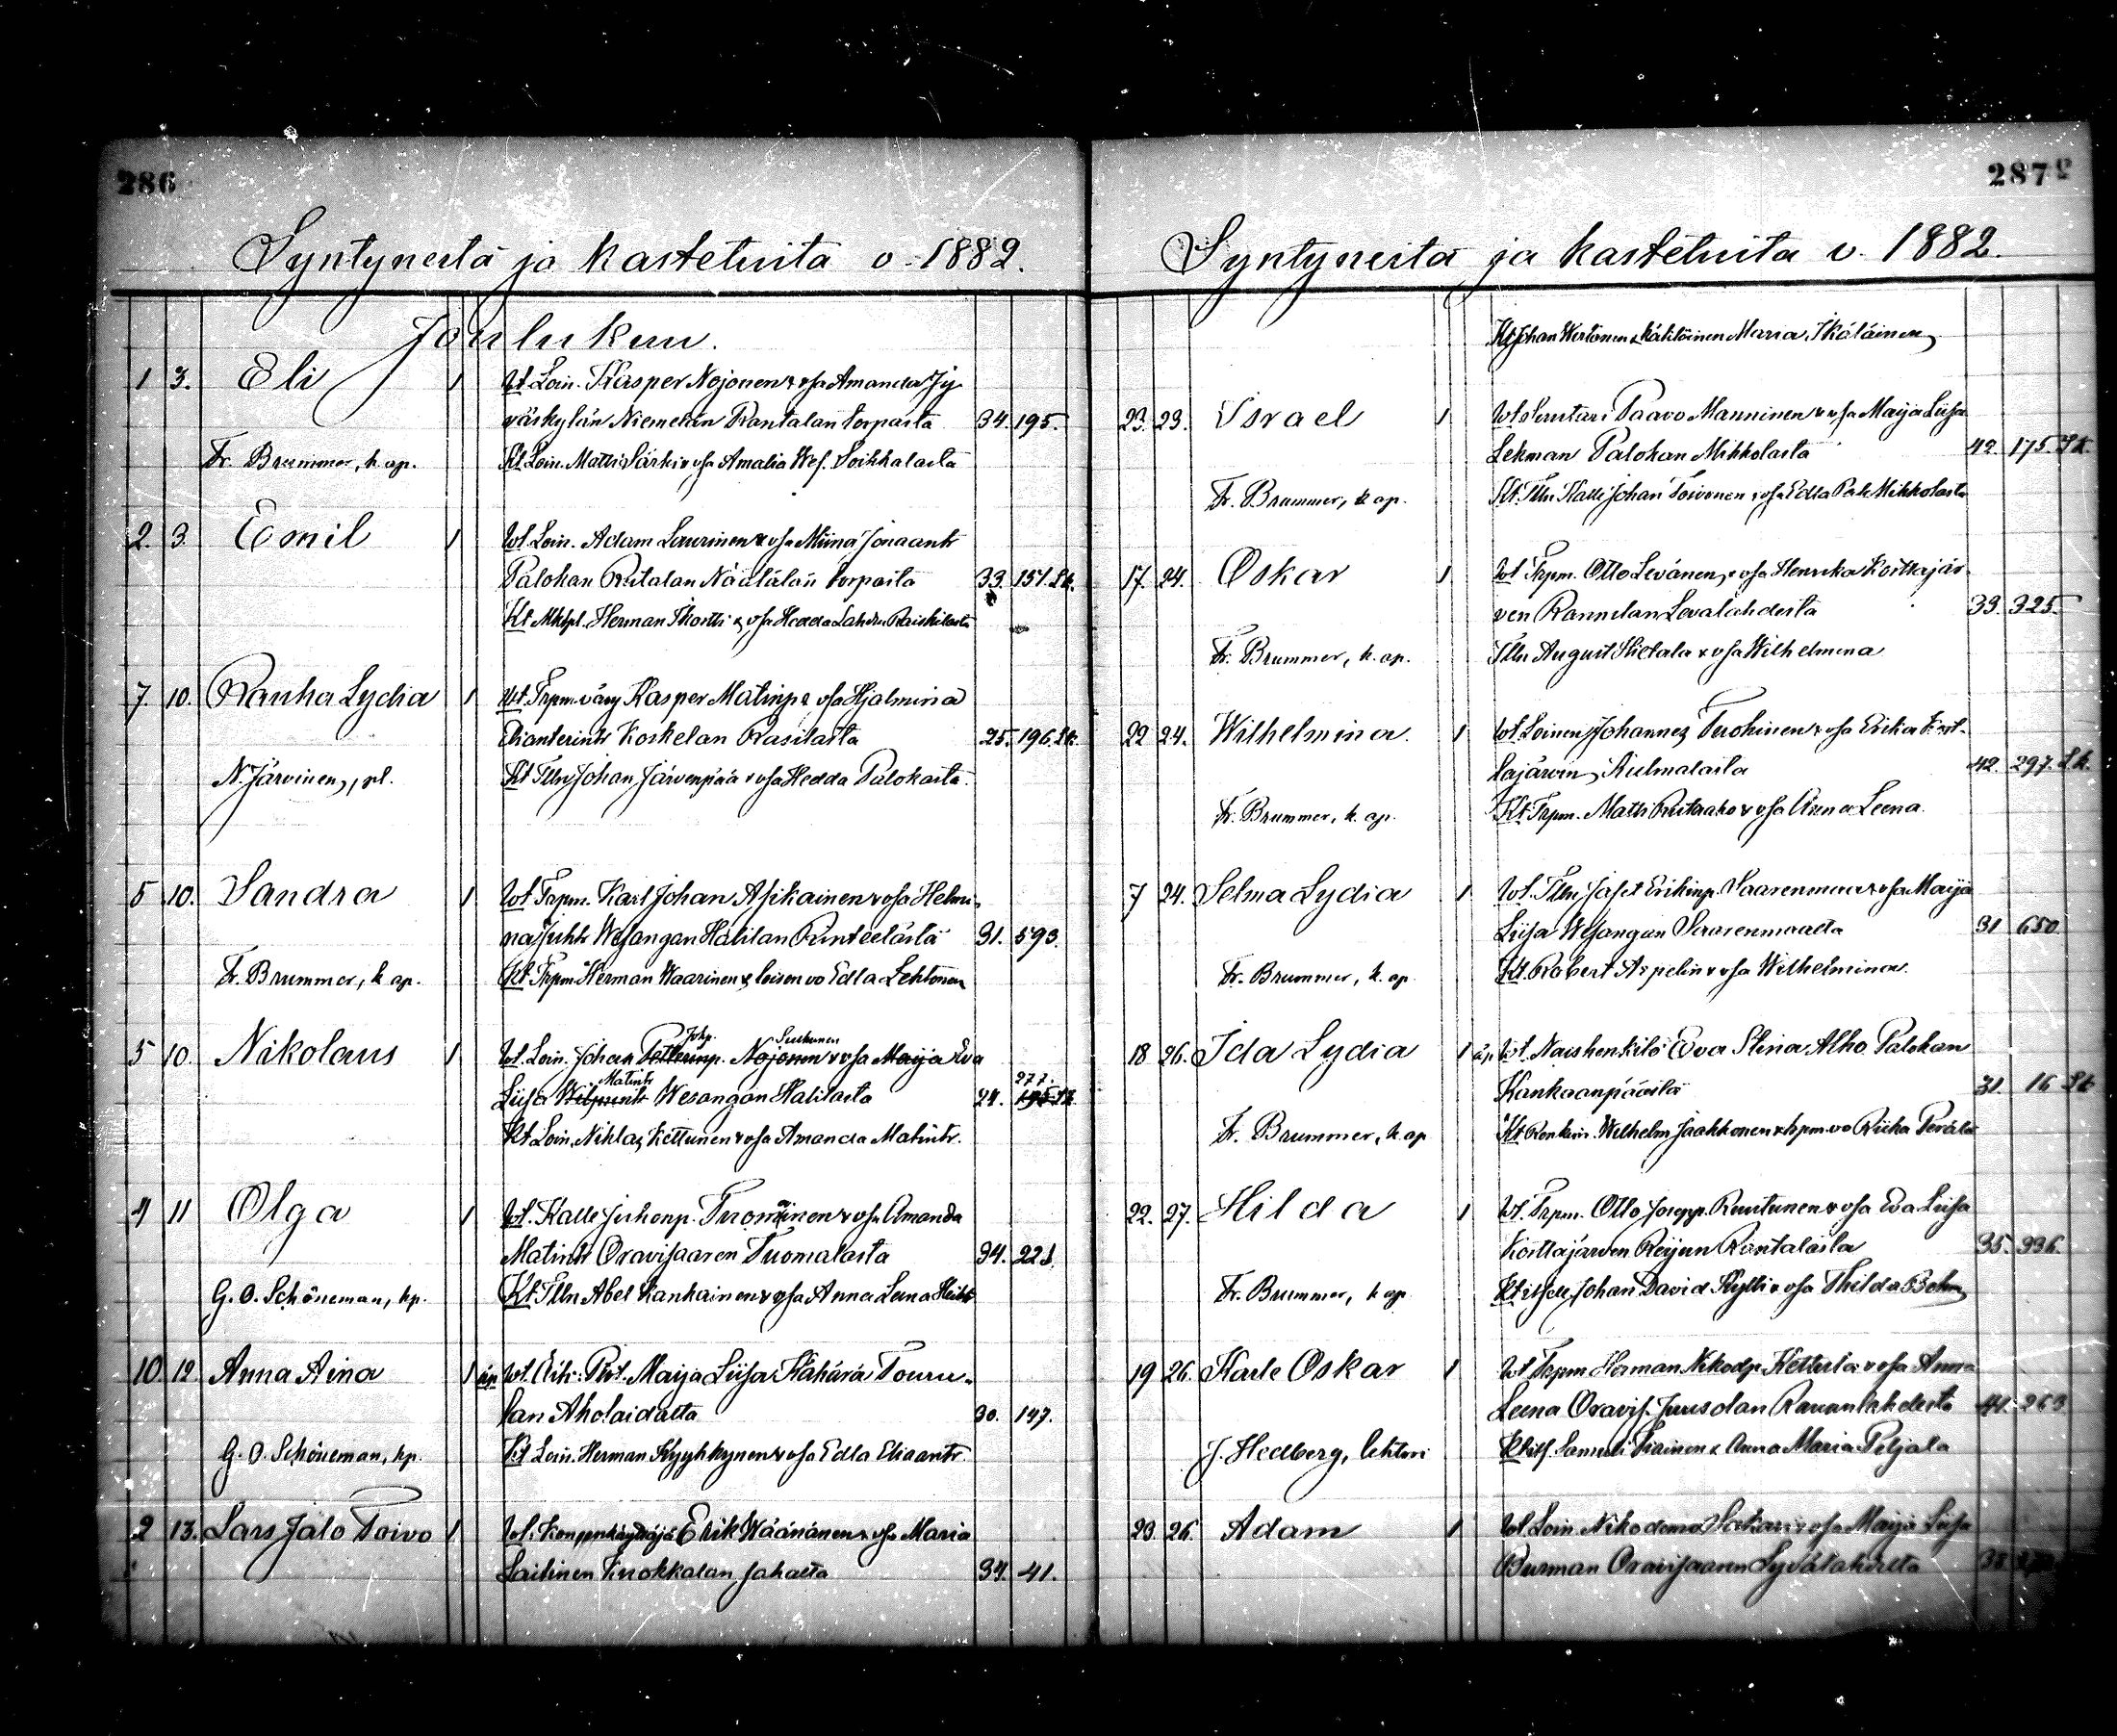 286
Syntyneitä ja kastetuita v. 1882.
Joulukuu.
1 3. Eli 1 Wt. Loin. Kasper Nojonen & vsa Amanda Jy-
väskylän Niemelän Rantalan torpasta 34. 195.
Fr. Brummer, k. ap. Kt. Loin. Matti Särki & vsa Amalia Wes. Soikkalasta
2. 3. Emil 1 Wt. Loin. Adam Laurinen & vsa Miina Jonaantr
Palokan Ritalan Näätälän torpasta 33. 151. Lk.
Kt. Mktpl. Herman & vsa Hedda Lahdu Raiskilasta
7. 10. Rauha Lydia 1 Wt. Trpm. väry Kasper Matinp. & vsa Hjalmina
Elianterintr Koskelan Rasilasta 25. 196. Lk.
N. Järvinen, pl. Kt. Tlln Johan Järvenpää & vsa Hedda Palokasta.
5 10. Sandra 1 Wt. Trpm. Karl Johan Asikainen & vsa Helmi-
na Juhtr Wesangan Halilan Rinteelästä 31. 593.
Fr. Brummer, k. ap. Kt. Trpm. Herman Waarinen & loisen vo Edla Lehtonen
5 10. Nikolaus 1 Wt. Loin. Johan Petterinp. Johp. Nojonen Suhonen & vsa Maija Eva
Liisa Matintr Wesangan Halilasta 24. 277. 195. Lk.
Kt. Loin. Niklas Kettunen & vsa Amanda Matintr.
4 11 Olga 1 Wt. Kalle Juhonp. Tuominen & vsa Amanda
Matintr Oravisaaren Tuomalasta 34. 221.
G. O. Schöneman, kp. Kt. Tlln Abel Kankainen & vsa Anna Leena Heiktr
10. 12 Anna Aina 1 äp. Wt. Itik. Pht. Maija Liisa Kähärä Touru-
lan Aholaidalta 30. 147.
G. O. Schöneman, kp. Kt. Loin. Herman Kyyhkynen & vsa Edla Eliaantr.
2 13. Lars Jalo Toivo 1 Wt. Konneenkäyttäjä Erik Wäänänen & vsa Maria
Laitinen Kuokkalan sahalta 34. 41.
287
Syntyneitä ja kastetuita v. 1882.
Kt. Johan Wertanen & kätilöinen Maria Ikäläinen
23. 23. Israel 1 Wt. Paavo Manninen & vsa Maija Liisa
Lekman Palokan Mikkolasta 42. 175. Lk.
Fr. Brummer, k. ap. Kt. Tlln Kalle Johan Toivonen & vsa Edla Palk. Mikkolasta
17. 24. Oskar 1 Wt. Trpm. Otto Levänen & vsa Henrika Kortejär-
ven Rannilan Levalahdesta 33. 325.
Fr. Brummer, k. ap. Tlln August Hietala & vsa Wilhelmina
22 24. Wilhelmina. 1 Wt. Loinen Johannes Tuohinen & vsa Erika Kort-
tajärven Kulmalasta 42. 297. Lk.
Fr. Brummer, k. ap. Kt. Trpm. Matti Ruthaaho & vsa Anna Leena.
7 24. Selma Lydia 1 Wt. Tlln Jafet Erikinp. Saarenmaa & vsa Maija
Liisa Wesangan Saarenmaalta 31 650.
Fr. Brummer, k. ap. Kt. Robert Arpelin & vsa Wilhelmina.
18 26. Ida Lydia 1 äp. Wt. Naishenkilö Eva Stina Alho Palokan
Kankaanpäästä 31. 16 Lk.
Fr. Brummer, k. ap Kt. Renkiv. Wilhelm Jaakkonen & trpm. vo Riika Perälä
22. 27. Hilda 1 Wt. Trpm. Otto Josepp. Ruutunen & vsa Eva Liisa
Korttajärven Reijun Rantalasta 35. 336.
Fr. Brummer, k. ap. Kt. Itsell. Johan David Kylli & vsa Thilda Bohm
19 26. Karle Oskar 1 Wt. Trpm. Herman Nikodp. Kettula & vsa Anna
Leena Oravis. Juusolan Rauanlahdesta 41. 263.
J. Hedberg, lehtori Kt. Its. Samuli & Anna Maria Peljala
23. 26. Adam 1 Wt. Loin. Nikodemo Sakari & vsa Maija Liisa
Burman Oravisaaren Syvälahdelta 38.